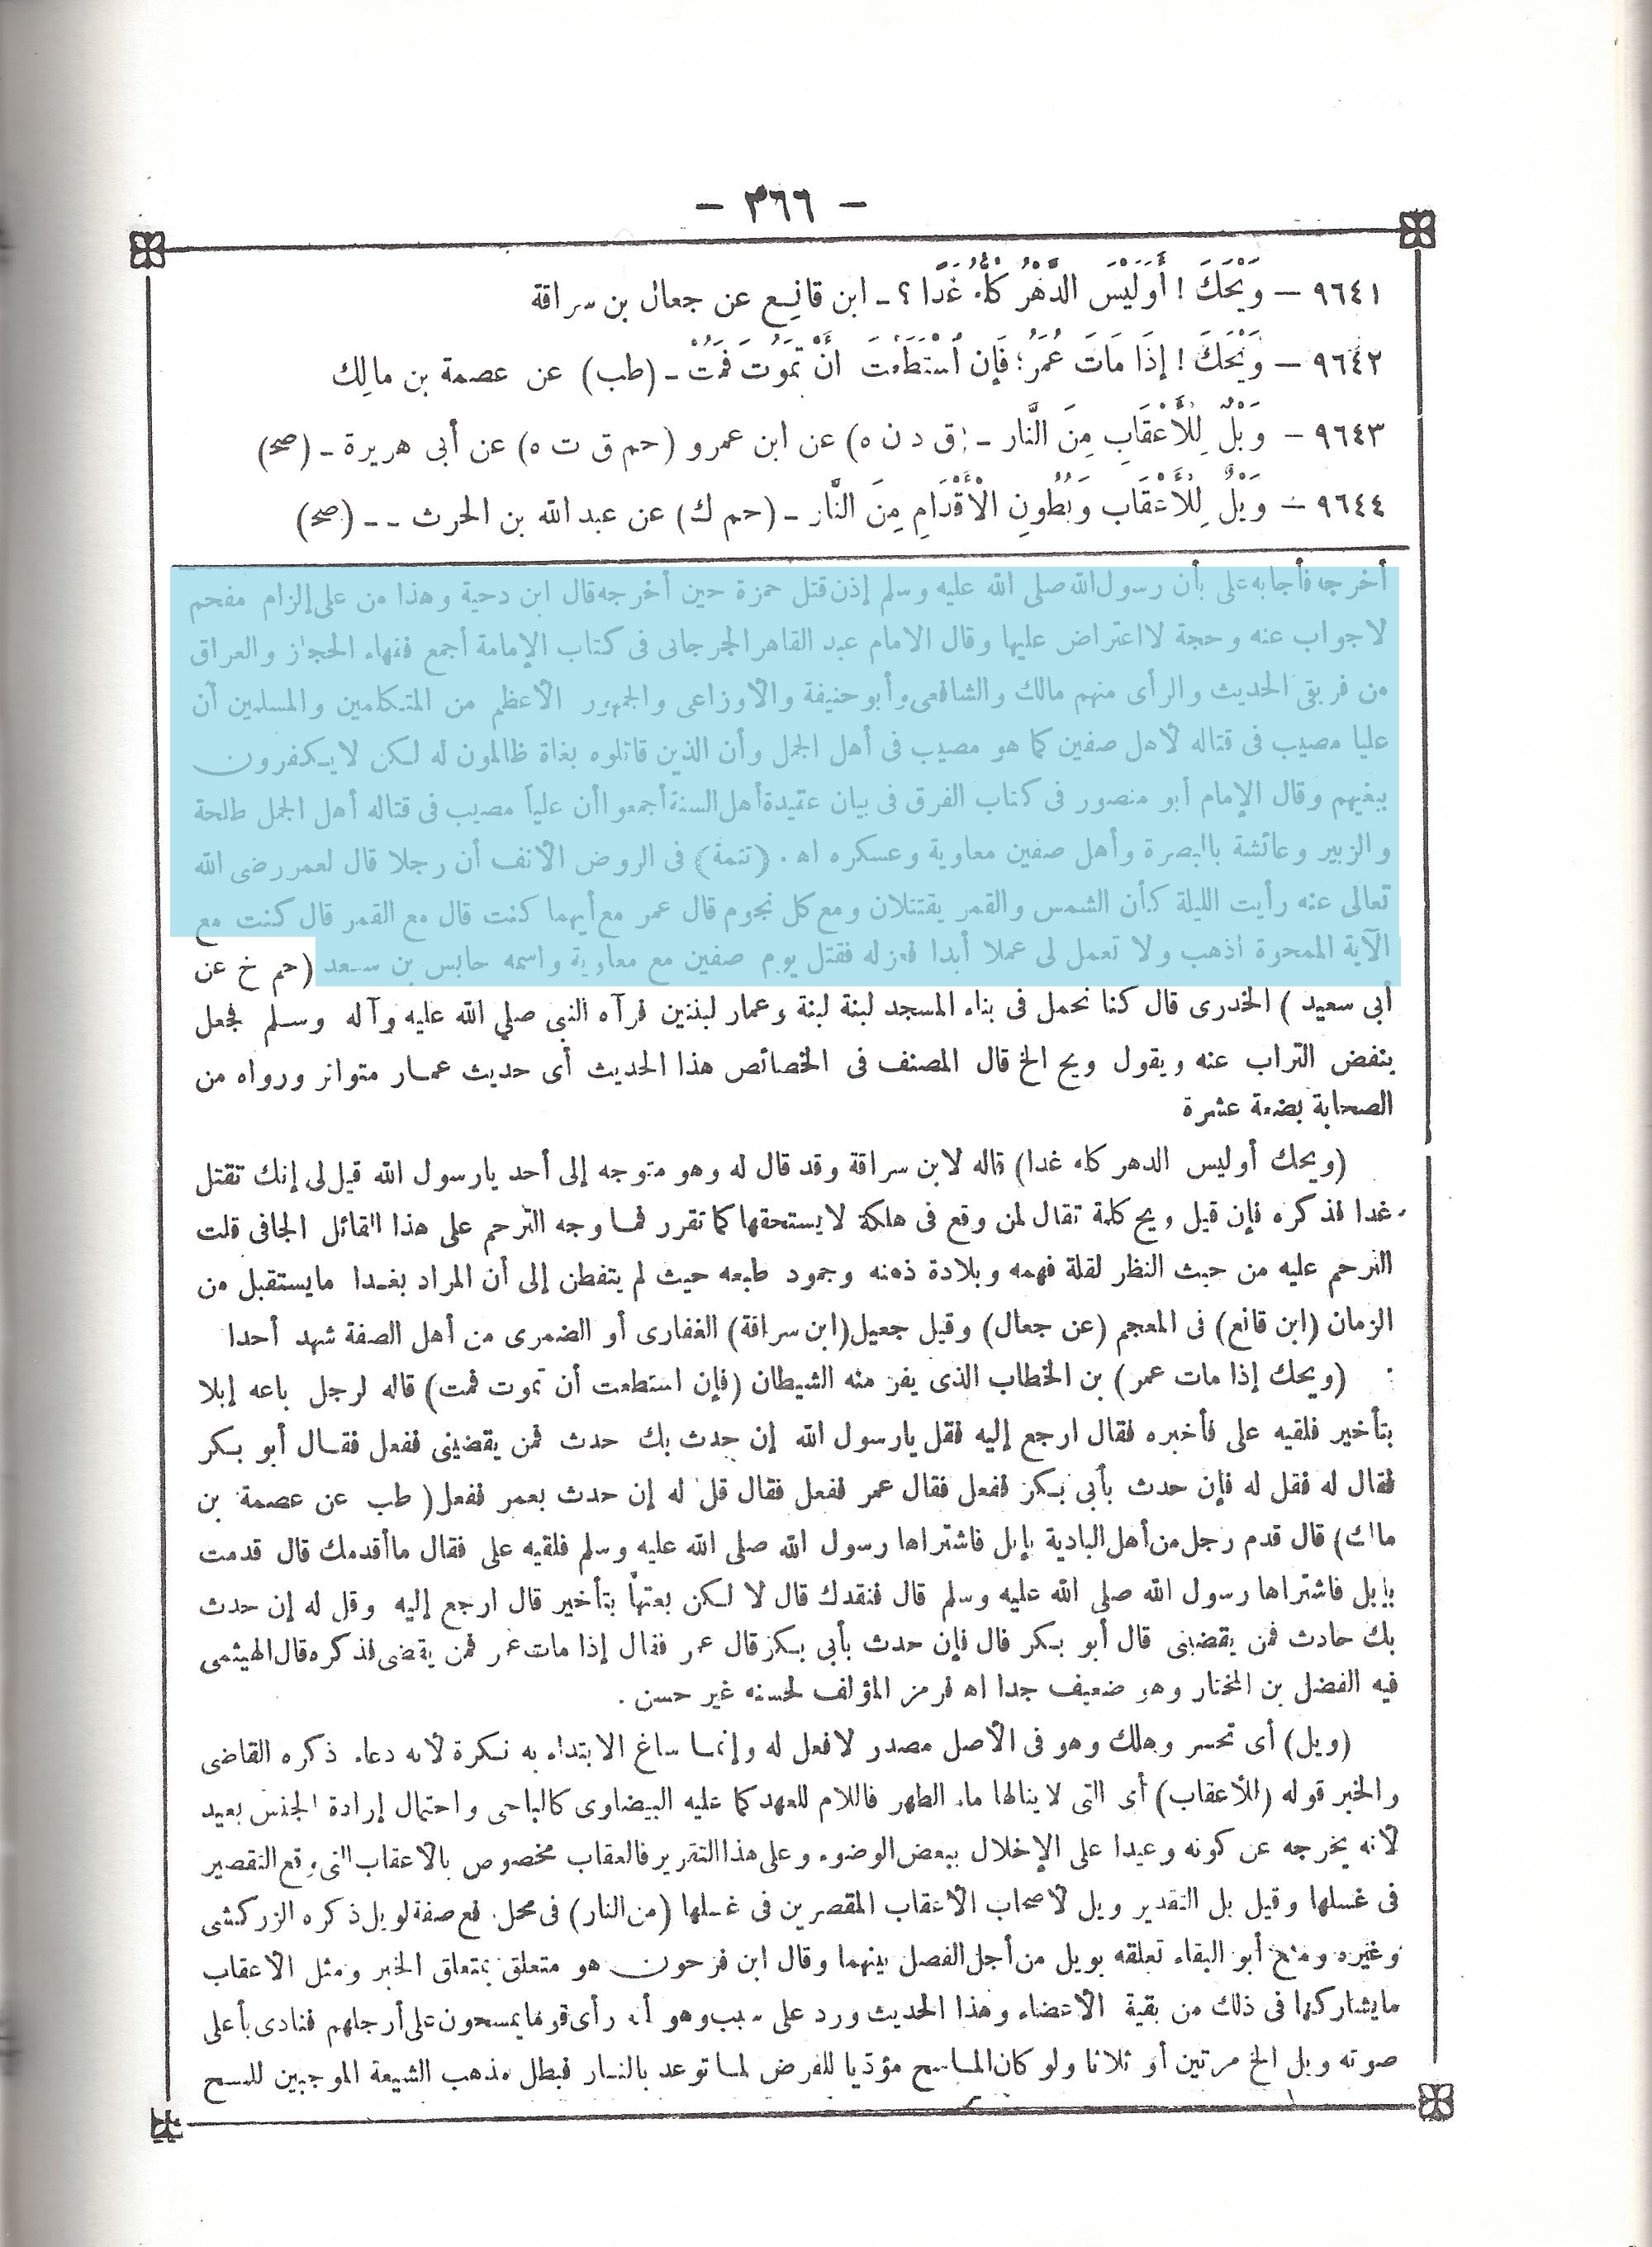 - ٣٦٦ -
٩٦٤١ — وَيْحَكَ ! أَوَلَيْسَ الدَّهْرُ كُلُّهُ غَدًا ؟ - ابن قانِع عن جعال بن سراقة
٩٦٤٢ — وَيْحَكَ ! إِذَا مَاتَ عُمَرُ ؛ فَإِن اُسْتَطَعْتَ أَنْ تَمُوتَ فَمُتْ - (طب) عن عصمة بن مالِك
٩٦٤٣ — وَيْلٌ لِلْأَعْقَابِ مِنَ النَّار - (ق د ن ه) عن ابن عمرو (حم ق ت ه) عن أبى هريرة - (صح)
٩٦٤٤ — وَيْلٌ لِلْأَعْقَاب وَبُطُونِ الْأَقْدَامِ مِنَ النَّار - (حم ك) عن عبد الله بن الحرث - - (صح)
أخرجه فأجابه على بأن رسول الله صلى الله عليه وسلم إذن قتل حمزة حين أخرجه قال ابن دحية وهذا من على إلزام مفحم
لاجواب عنه وحجة لااعتراض عليها وقال الامام عبد القاهر الجرجانى فى كتاب الإمامة أجمع فقهاء الحجاز والعراق
من فريقى الحديث والرأى منهم مالك والشافعى وأبو حنيفة والأوزاعى والجمهور الأعظم من المتكلمين والمسلمين أن
عليا مصيب فى قتاله لأهل صفين كما هو مصيب فى أهل الجمل وأن الذين قاتلوه بغاة ظالمون له لكن لايكفرون
ببغيهم وقال الإمام أبو منصور فى كتاب الفرق فى بيان عقيدة أهل السنة أجمعوا أن علياً مصيب فى قتاله أهل الجمل طلحة
والزبير وعائشة بالبصرة وأهل صفين معاوية وعسكره اه . (تتمة) فى الروض الأنف أن رجلا قال لعمر رضى الله
تعالى عنه رأيت الليلة كأن الشمس والقمر يقتتلان ومع كل نجوم قال عمر مع أيهما كنت قال مع القمر قال كنت مع
الآية الممحوة اذهب ولا تعمل لى عملا أبدا فعزله فقتل يوم صفين مع معاوية واسمه حابس بن سعد (حم خ عن
أبى سعيد ) الخدرى قال كنا نحمل فى بناء المسجد لبنة لبنة وعمار لبنتين فرآه النبى صلي الله عليه وآله وسلم فجعل
ينفض التراب عنه ويقول ويح الخ قال المصنف فى الخصائص هذا الحديث أى حديث عمار متواتر ورواه من
الصحابة بضعة عشرة
(ويحك أوليس الدهر كله غدا) قاله لابن سراقة وقد قال له وهو متوجه إلى أحد يارسول الله قيل لى إنك تقتل
غدا فذكره فإن قيل ويح كلمة تقال لمن وقع فى هلكة لايستحقها كما تقرر فما وجه الترحم على هذا القائل الجافى قلت
الترحم عليه من حيث النظر لقلة فهمه وبلادة ذهنه وجمود طبعه حيث لم يتفطن إلى أن المراد بغدا مايستقبل من
الزمان (ابن قانع) فى المعجم (عن جعال) وقيل جعيل (ابن سراقة) الغفارى أو الضمرى من أهل الصفة شهد أحدا
(ويحك إذا مات عمر) بن الخطاب الذى يفر منه الشيطان (فإن استطعت أن تموت فمت) قاله لرجل باعه إبلا
بتأخير فلقيه على فأخبره فقال ارجع إليه فقل يارسول الله إن حدث بك حدث فمن يقضينى ففعل فقال أبو بكر
فقال له فقل له فإن حدث بأبى بكر ففعل فقال عمر ففعل فقال قل له إن حدث بعمر ففعل ( طب عن عصمة بن
مالك) قال قدم رجل من أهل البادية بإبل فاشتراها رسول الله صلى الله عليه وسلم فلقيه على فقال ماأقدمك قال قدمت
بإبل فاشتراها رسول الله صلى الله عليه وسلم قال فنقدك قال لا لكن بعتها بتأخير قال ارجع إليه وقل له إن حدث
بك حادث فمن يقضينى قال أبو بكر قال فإن حدث بأبى بكر قال عمر فقال إذا مات عمر فمن يقضى فذكره قال الهيثمى
فيه الفضل بن المختار وهو ضعيف جدا اه فرمز المؤلف لحسنه غير حسن .
(ويل) أى تحسر وهلك وهو فى الأصل مصدر لافعل له وإنما ساغ الابتداء به نكرة لأنه دعاء ذكره القاضى
والخبر قوله (للأعقاب) أى التى لاينالها ماء الطهر فاللام للعهد كما عليه البيضاوى كالباجى واحتمال إرادة الجنس بعيد
لأنه يخرجه عن كونه وعيدا على الإخلال ببعض الوضوء وعلى هذا التقرير فالعقاب مخصوص بالأعقاب التى وقع التقصير
فى غسلها وقيل بل التقدير ويل لأصحاب الأعقاب المقصرين فى غسلها (من النار) فى محل رفع صفة لويل ذكره الزركشى
وغيره ومنع أبو البقاء تعلقه بويل من أجل الفصل بينهما وقال ابن فرحون هو متعلق بمتعلق الخبر ومثل الأعقاب
مايشاركها فى ذلك من بقية الأعضاء وهذا الحديث ورد على سبب وهو أنه رأى قوما يمسحون على أرجلهم فنادى بأعلى
صوته ويل الخ مرتين أو ثلاثا ولو كان الماسح مؤديا للفرض لما توعد بالنار فبطل مذهب الشيعة الموجبين للمسح